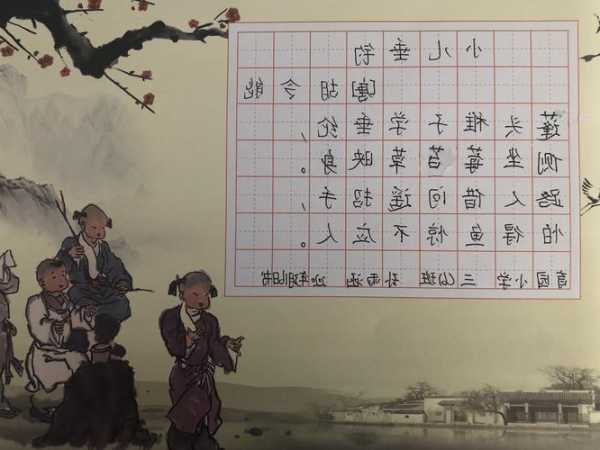 小儿垂钓
[唐]胡令能
蓬头稚子学垂纶,
侧坐莓苔草映身。
路人借问遥招手,
怕得鱼惊不应人。
育园小学 班 孙雨涵 书